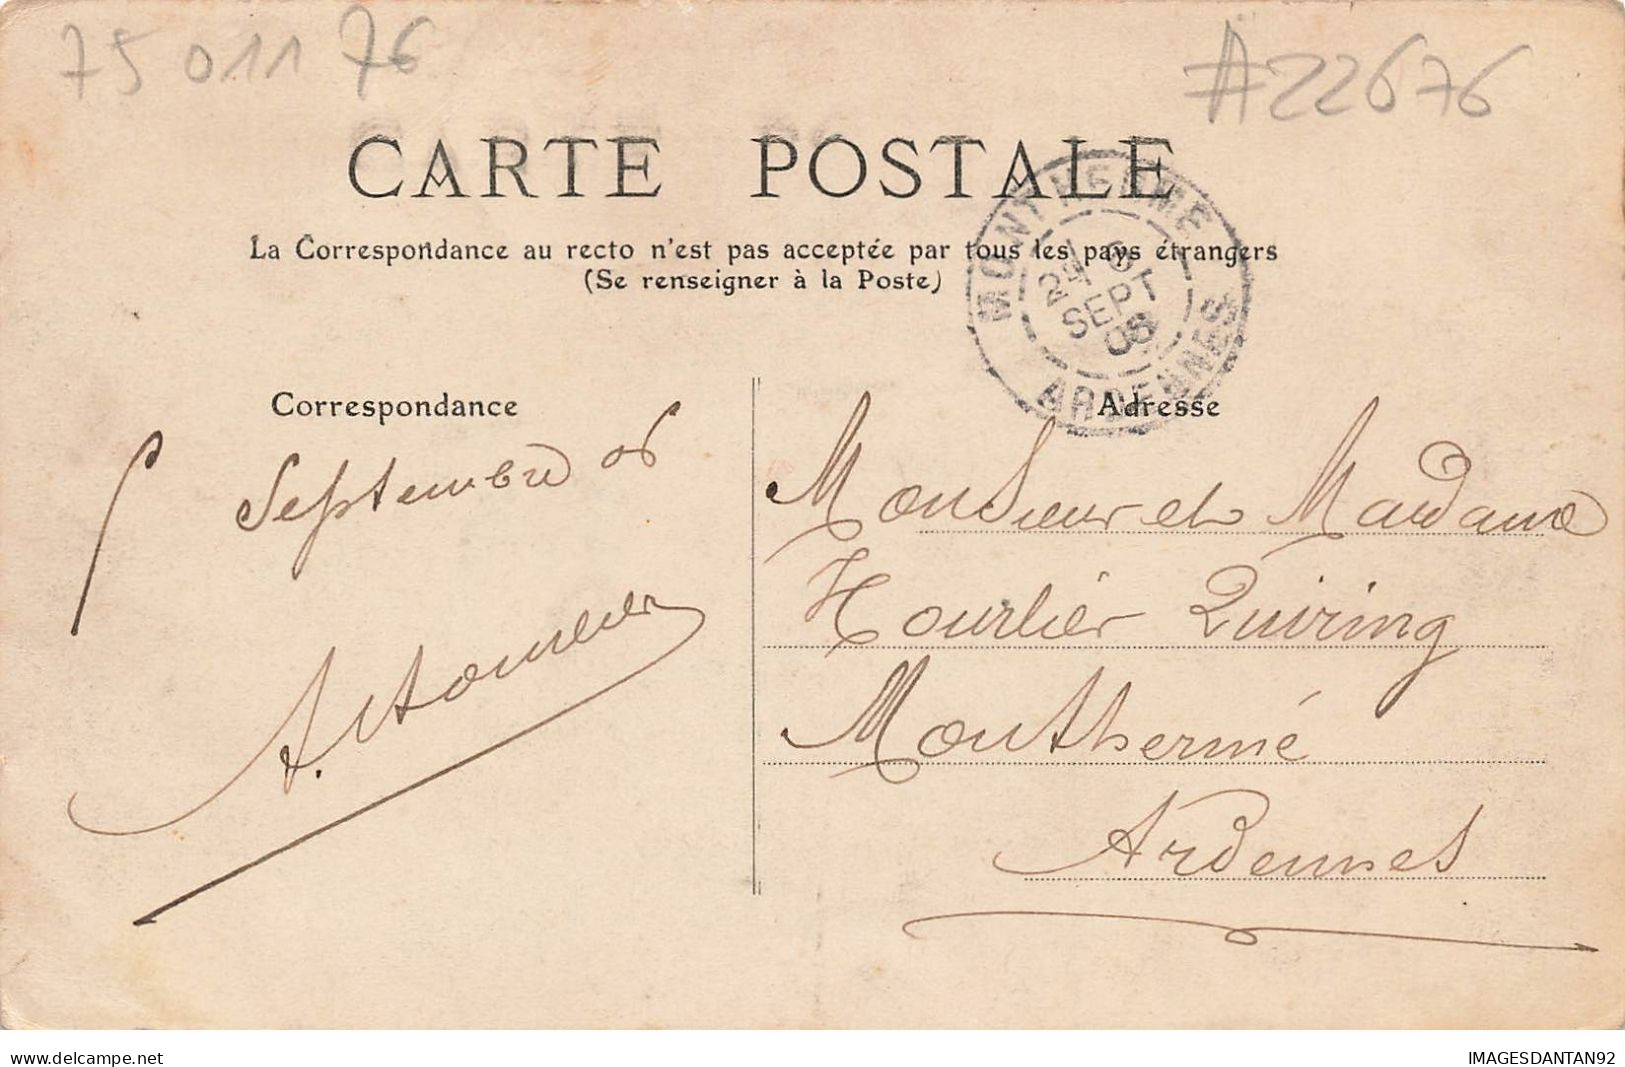 75 011 76
A22676
CARTE POSTALE
La Correspondance au recto n'est pas acceptée par tous les pays étrangers
(Se renseigner à la Poste)
MONTHERMÉ
6
SEPT
06
ARDENNES
Correspondance
Adresse
Septembre 06
A.
Monsieur et Madame
Hourlier Quiring
Monthermé
Ardennes
www.delcampe.net
IMAGESDANTAN92